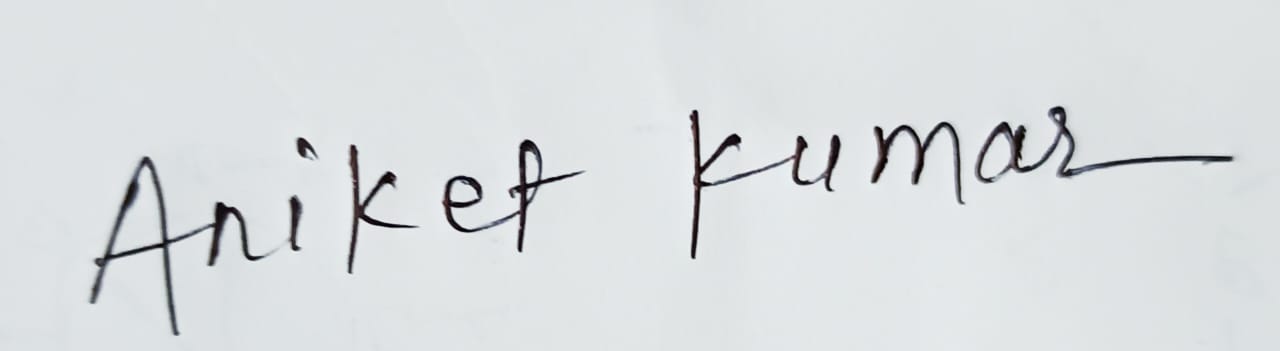 Aniket Kumar